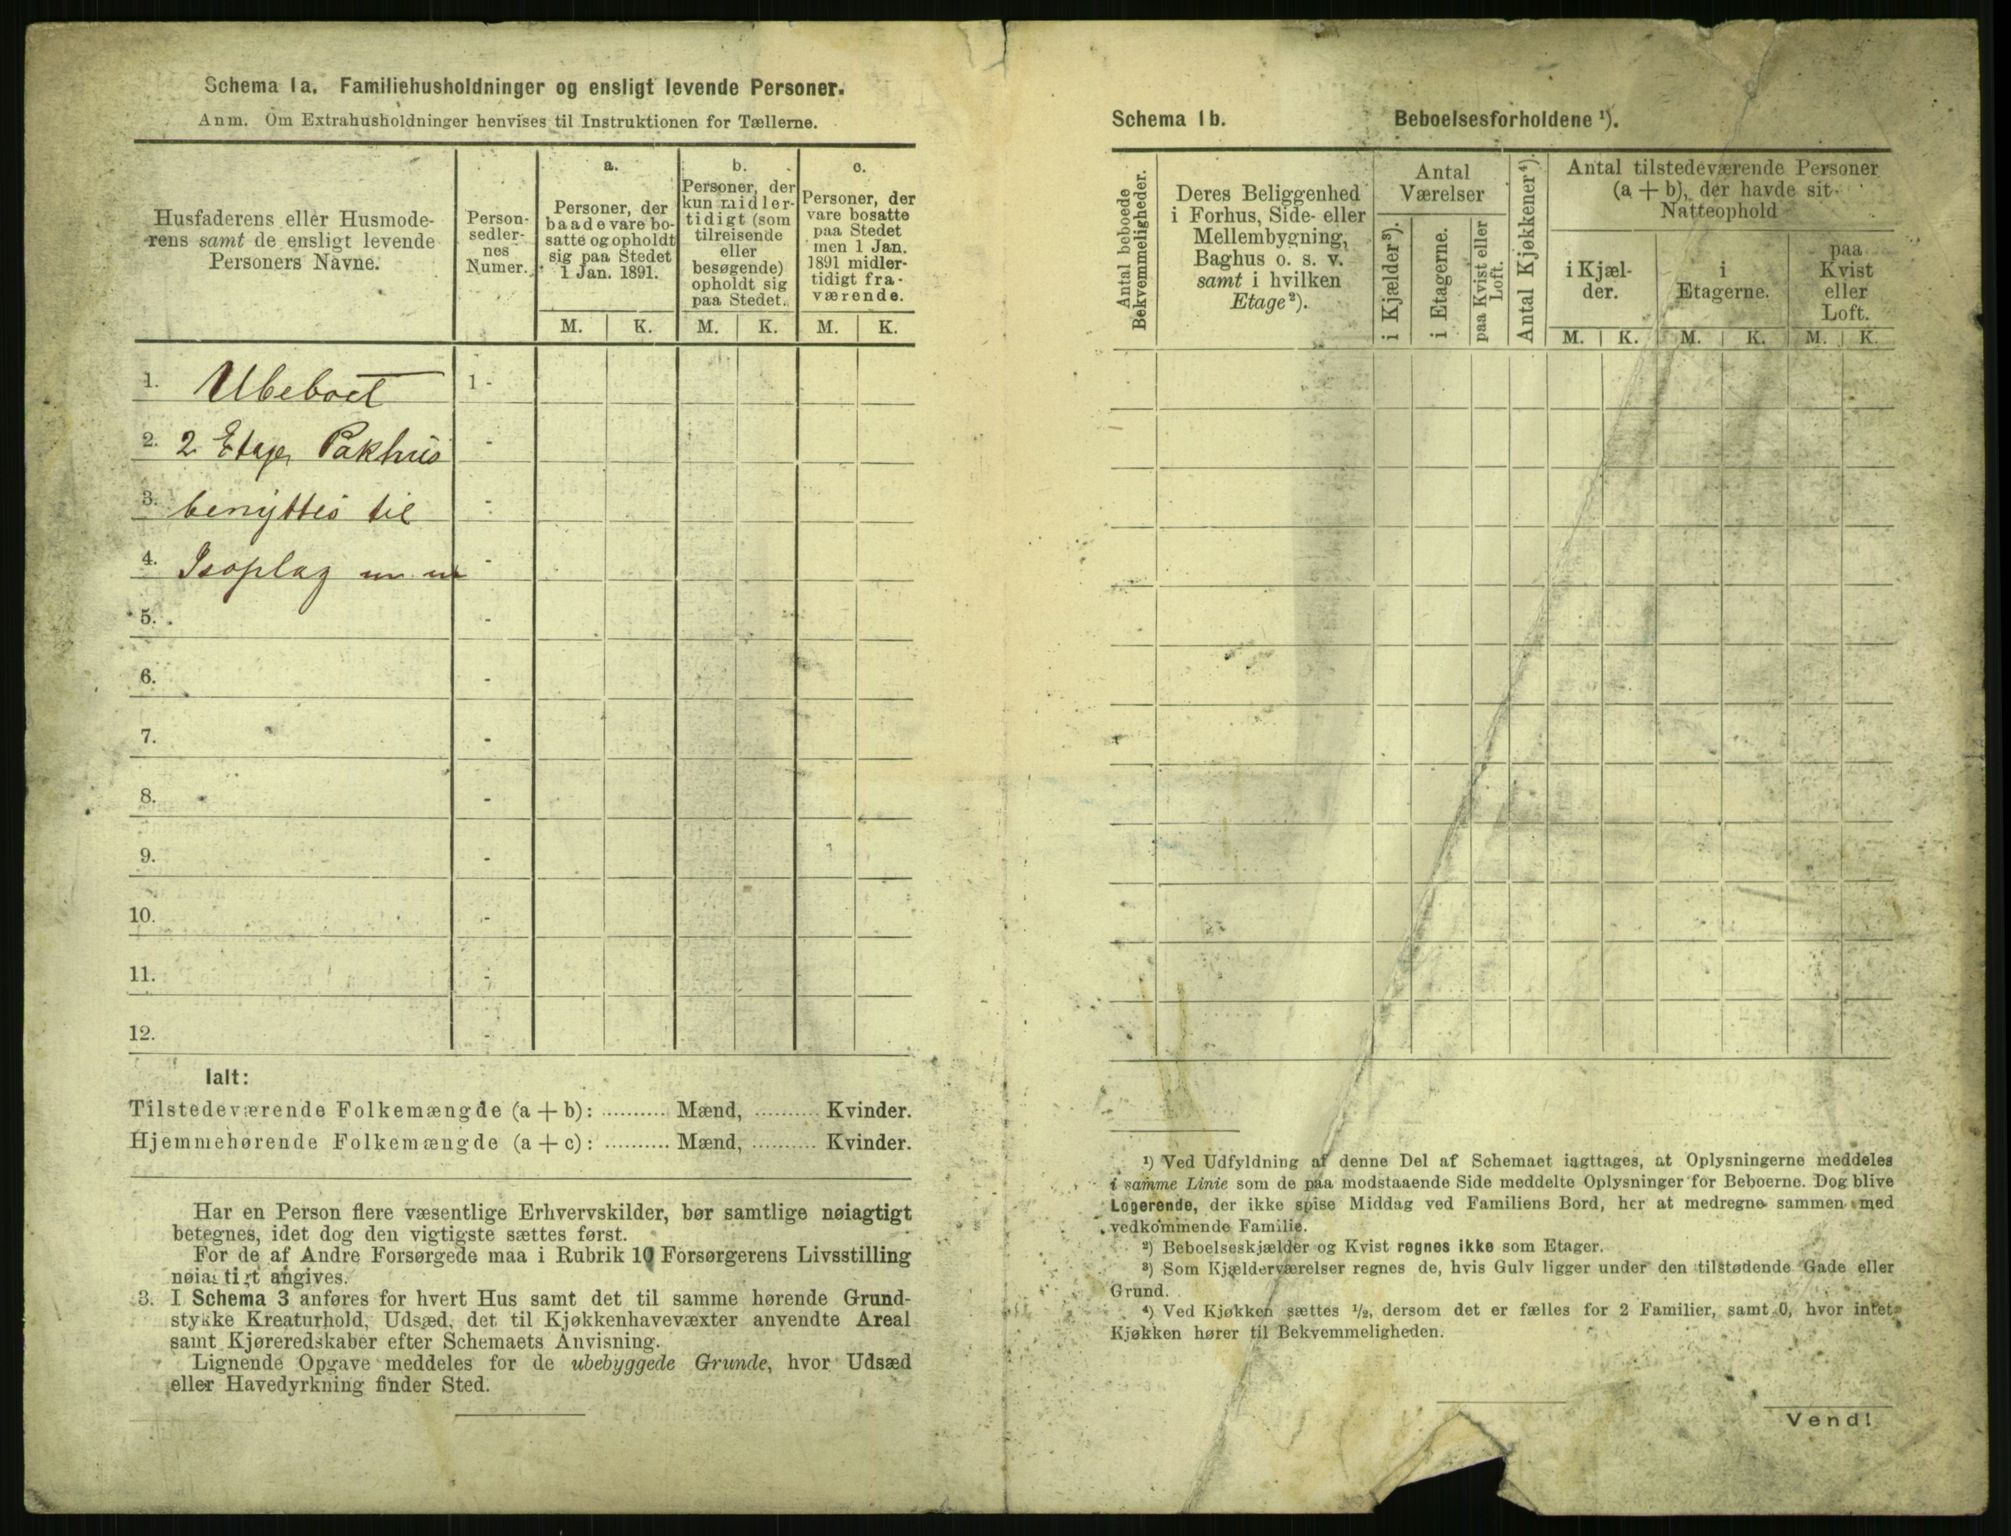 Schema 1a. Familiehusholdninger og ensligt levende Personer.
Anm. Om Extrahusholdninger henvises til Instruktionen for Tællerne.
Husfaderens eller Husmode-
rens samt de ensligt levende
Personers Navne.
Person-
sedler-
nes
Numer.
a.
Personer, der
baade vare bo-
satte og opholdt
sig paa Stedet
1 Jan. 1891.
M. K.
b.
Personer, der
kun midler-
tidigt (som
tilreisende
eller
besøgende)
opholdt sig
paa Stedet.
M. K.
c.
Personer, der
vare bosatte
paa Stedet
men 1 Jan.
1891 midler-
tidigt fra-
værende.
M. K.
1. Ubeboet 1 -
2. 2 Etages Pakhus -
3. benyttes til -
4. Isoplag m m -
5. -
6. -
7. -
8. -
9. -
10. -
11. -
12. -
Ialt:
Tilstedeværende Folkemængde (a + b): .......... Mænd, .......... Kvinder.
Hjemmehørende Folkemængde (a + c): .......... Mænd, .......... Kvinder.
Har en Person flere væsentlige Erhvervskilder, bør samtlige nøiagtigt
betegnes, idet dog den vigtigste sættes først.
For de af Andre Forsørgede maa i Rubrik 10 Forsørgerens Livsstilling
nøiagtigt angives.
3. I Schema 3 anføres for hvert Hus samt det til samme hørende Grund-
stykke Kreaturhold, Udsæd, det til Kjøkkenhavevæxter anvendte Areal
samt Kjøreredskaber efter Schemaets Anvisning.
Lignende Opgave meddeles for de ubebyggede Grunde, hvor Udsæd
eller Havedyrkning finder Sted.
Schema 1b. Beboelsesforholdene ¹).
Antal beboede
Bekvemmeligheder.
Deres Beliggenhed
i Forhus, Side- eller
Mellembygning,
Baghus o. s. v.
samt i hvilken
Etage ²).
Antal
Værelser
i Kjælder ³).
i Etagerne.
paa Kvist eller
Loft.
Antal Kjøkkener ⁴).
Antal tilstedeværende Personer
(a + b), der havde sit
Natteophold
i Kjæl-
der.
i
Etagerne.
paa
Kvist
eller
Loft.
M. K. M. K. M. K.
¹) Ved Udfyldning af denne Del af Schemaet iagttages, at Oplysningerne meddeles
i samme Linie som de paa modstaaende Side meddelte Oplysninger for Beboerne. Dog blive
Logerende, der ikke spise Middag ved Familiens Bord, her at medregne sammen med
vedkommende Familie.
²) Beboelseskjælder og Kvist regnes ikke som Etager.
³) Som Kjælderværelser regnes de, hvis Gulv ligger under den tilstødende Gade eller
Grund.
⁴) Ved Kjøkken sættes ½, dersom det er fælles for 2 Familier, samt 0, hvor intet
Kjøkken hører til Bekvemmeligheden.
Vend!